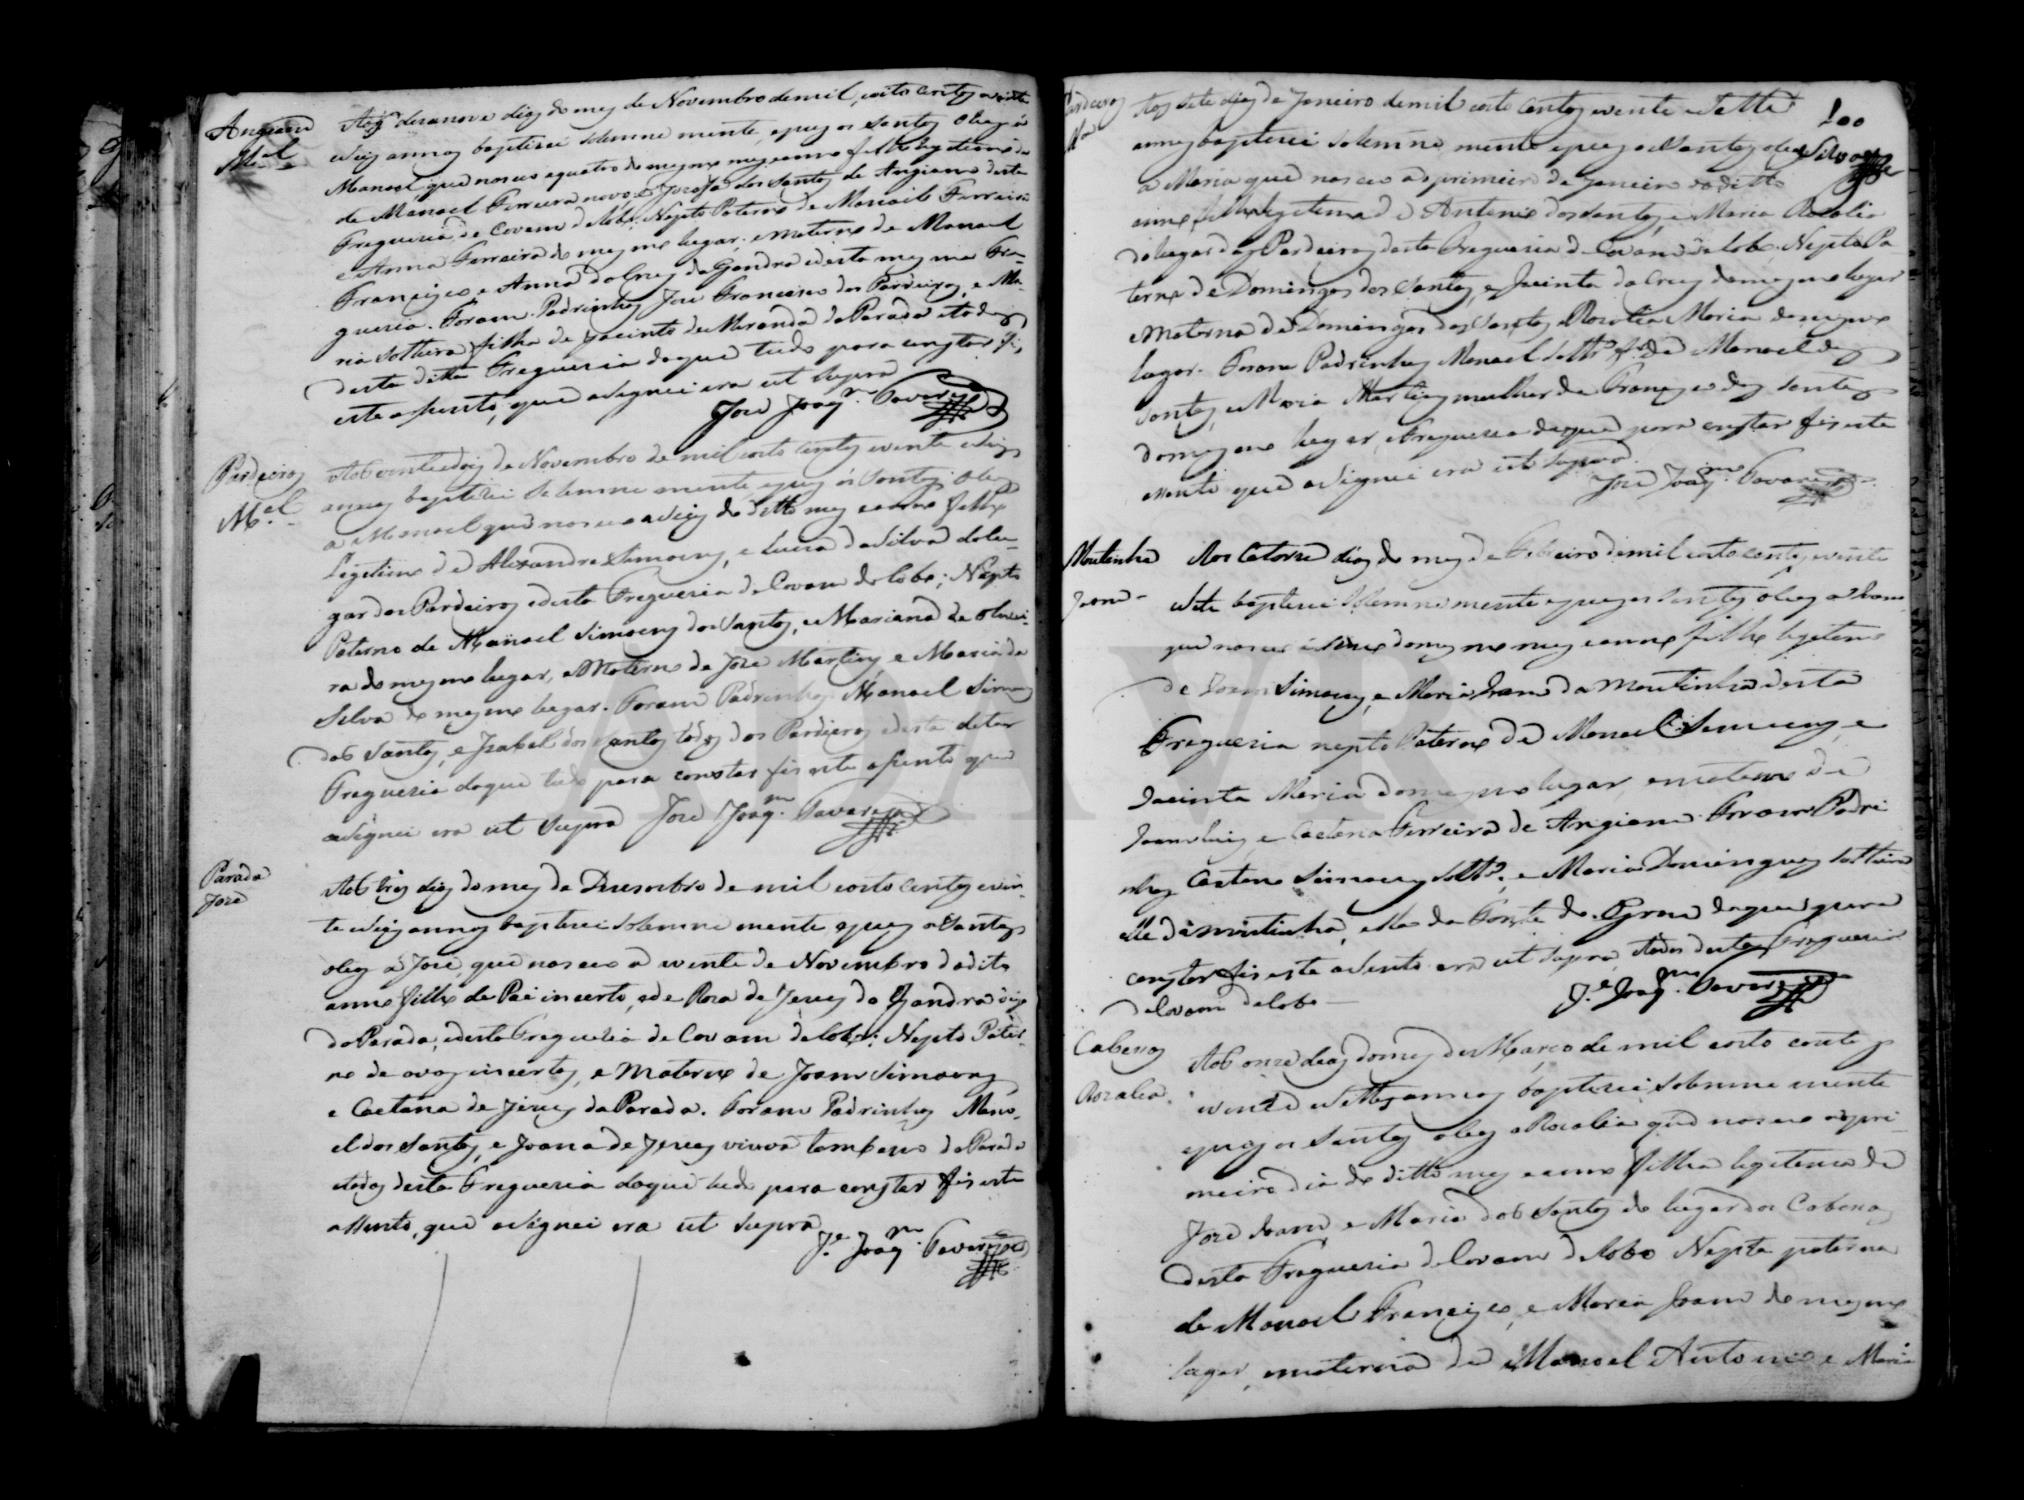 Angiam
M.el
Aos desanove dias do mes de Novembro de mil oito centos e vinte
e seis annos baptizei solemne mente, e puz os santos oleos a
Manoel, que nasceo a quatro do mesmo mes e anno filho legitimo
de Manoel Ferreira novo, e Josefa dos Santos de Angiam desta
Freguezia de Covam do Lobo, Nepto Paterno de Manoel Ferreira
e Anna Ferreira do mesmo lugar, e materno de Manoel
Francisco e Anna da Cruz da Gandra e desta mesma Fre-
guezia. Foram Padrinhos Joze Francisco dos Pardeiros, e Ma-
ria solteira filha de Jacinto de Miranda da Parada e todos
desta ditta Freguezia do que tudo para constar fis
este assento, que asignei era ut supra
Joze Joaq.m Tavares
Pardeiros
M.el
Aos vinte e dois de Novembro de mil oito centos e vinte e seis
annos baptizei solemne mente, e puz os santos oleos
a Manoel que nasceo a seis do ditto mes e anno filho
legitimo de Alexandre Simoens, e Luiza da Silva do lu-
gar dos Pardeiros e desta Freguezia de Covam do Lobo; Nepto
Paterno de Manoel Simoens dos Santos, e Mariana de Olivei-
ra do mesmo lugar, e Materno de Joze Martins e Maria da
Silva do mesmo lugar. Foram Padrinhos Manoel Simoens
dos Santos, e Izabel dos Santos todos dos Pardeiros e desta ditta
Freguezia do que tudo para constar fis este assento que
asignei era ut supra Joze Joaq.m Tavares
Parada
Joze
Aos tres dias do mes de Dezembro de mil oito centos e vin-
te e seis annos baptizei solemne mente, e puz os Santos
oleos a Joze, que nasceo a vinte de Novembro do dito
anno filho de Pai incerto, e de Roza de Jezus da Gandra
da Parada, e desta Freguezia de Covam do Lobo; Nepto Pater-
no de avos incertos, e Materno de Joam Simoens
e Caetana de Jezus da Parada. Foram Padrinhos Mano-
el dos Santos, e Joana de Jezus viuva tambem da Parada
e todos desta Freguezia do que tudo para constar fis este
assento, que asignei era ut supra
J.e Joaq.m Tavares
Pardeiros
M.a
100
Silva
Aos sete dias de Janeiro de mil oito centos e vinte e sette
annos baptizei solemne mente e puz os Santos oleos
a Maria que nasceo ao primeiro de Janeiro do ditto
anno filha legitima de Antonio dos Santos, e Maria Rozalia
do lugar dos Pardeiros desta Freguezia de Covam do Lobo. Nepta Pa-
terna de Domingos dos Santos, e Jacinta da Cruz do mesmo lugar
e Materna de Domingos dos Santos e Rozalia Maria do mesmo
lugar. Foram Padrinhos Manoel soltr.o f.o de Manoel dos
Santos, e Maria Martins mulher de Francisco dos Santos
do mesmo lugar, e Freguezia do que para constar fis este
assento que asignei era ut supra.
Joze Joaq.m Tavares
Moutinha
Joam
Aos Catorze dias do mes de Febreiro de mil oito centos e vinte
e sete baptizei solemne mente e puz os santos oleos a Joam
que nasceo a sinco do mesmo mes e anno filho legitimo
de Joam Simoens, e Maria Joam da Moutinha desta
Freguezia nepto Paterno de Manoel Simoens, e
Jacinta Maria do mesmo lugar, e materno de
Joam Luis e Caetana Ferreira de Angiam. Foram Padri-
nhos Caetano Simoens soltr.o, e Maria Domingues solteira
elle da moutinha, ella da Fonte do Gram do que para
constar fis este assento era ut supra, e todos desta Freguezia
de Covam do Lobo
J.e Joaq.m Tavares
Cabesos
Rozalia
Aos onze dias do mes de Março de mil oito centos
vinte e sette annos baptizei solemne mente
e puz os santos oleos a Rozalia que nasceo ao pri-
meiro dia do ditto mes e anno filha legitima de
Joze Joam, e Maria dos Santos do lugar dos Cabesos
desta Freguezia de Covam do Lobo Nepta paterna
de Manoel Francisco, e Maria Joam do mesmo
lugar, e materna de Manoel Antonio e Maria
ADAVR